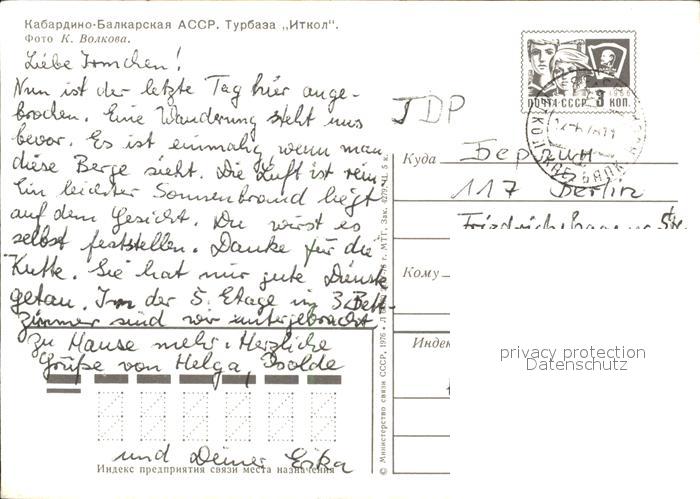 Кабардино-Балкарская АССР. Турбаза „Иткол".
Фото К. Волкова.
Liebe Irmchen!
Nun ist der letzte Tag hier ange-
brochen. Eine Wanderung steht uns
bevor. Es ist einmalig wenn man
diese Berge sieht. Die Luft ist rein
Ein leichter Sonnenbrand liegt
auf dem Gesicht. Du wirst es
selbst feststellen. Danke für die
Kutte. Sie hat mir gute Dienste
getan. Im der 5. Etage in 3 Bett-
zimmer sind wir untergebracht
Zu Hause mehr. Herzliche
Grüße von Helga, Isolde
und Deiner Erika
Индекс предприятия связи места назначения
© Министерство связи СССР, 1976
ПОЧТА СССР 3 КОП.
1966
ГДР
Куда Берлин
117 Berlin
Friedrichshagener Str.
Кому
Индекс
privacy protection
Datenschutz